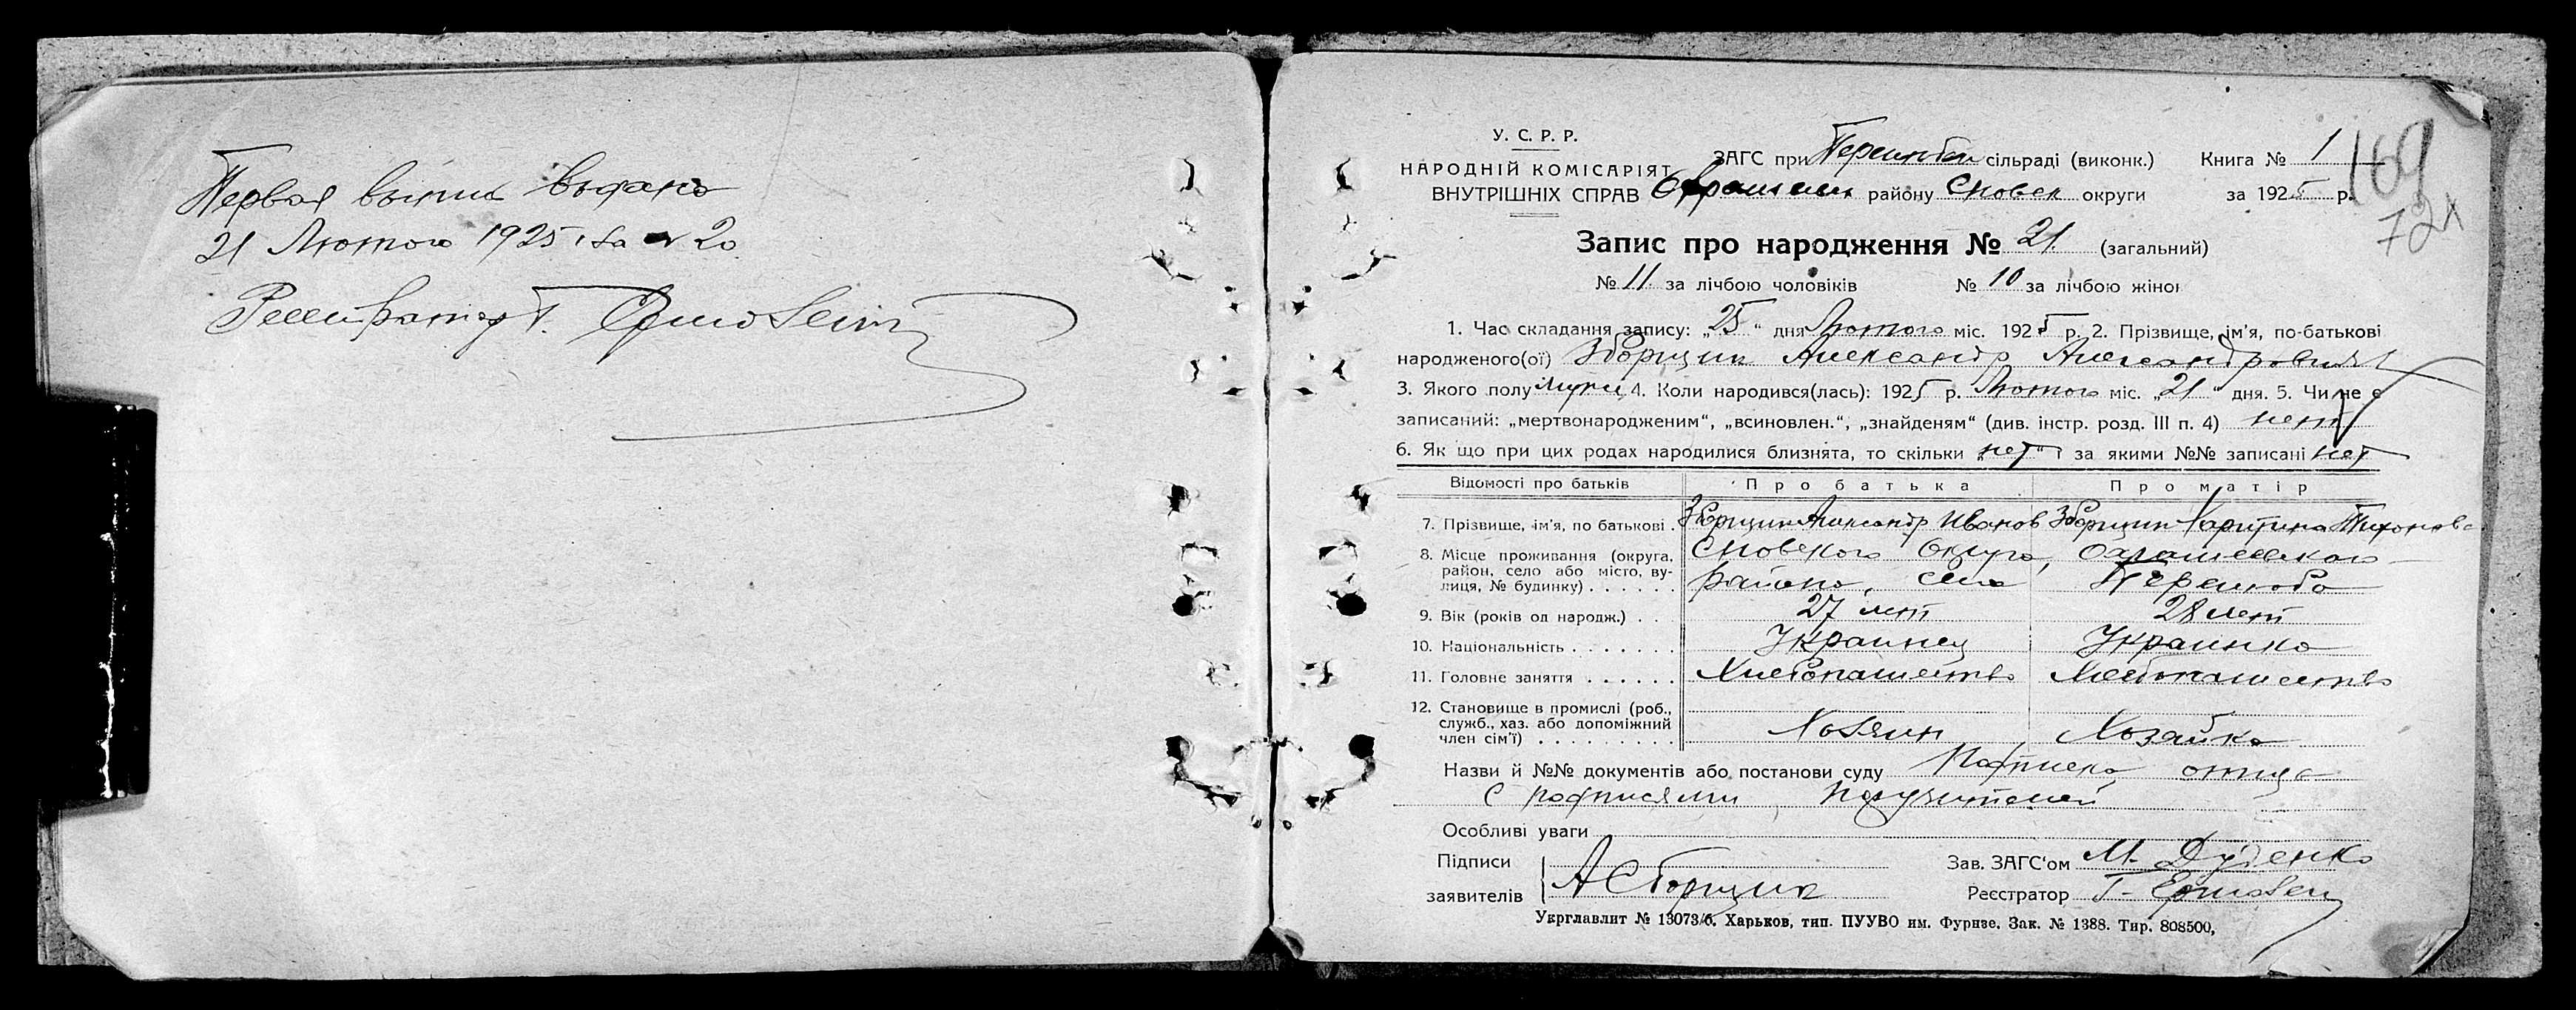 Первая выпись выдана
21 Лютого 1925 г. за № 20.
Регистратор Т. Ермолеин
У. С. Р. Р.
НАРОДНІЙ КОМІСАРІЯТ
ВНУТРІШНІХ СПРАВ
ЗАГС при сільраді (виконк.) Книга № 1
району Сновск округи за 1925 р.
169
72
Запис про народження № 21. (загальний)
№ 11 за лічбою чоловіків № 10 за лічбою жінок
1. Час складання запису: „25“ дня Лютого міс. 1925 р. 2. Прізвище, ім'я, по-батькові
народженого(ої) Зборщик Александр Александрович
3. Якого полу мужс. 4. Коли народився(лась): 1925 р. Лютого міс. „21“ дня. 5. Чи не є
записаний: „мертвонародженим“, „всиновлен.“, „знайденям“ (див. інстр. розд. III п. 4) нет
6. Як що при цих родах народилися близнята, то скільки „нет“ і за якими №№ записані нет
Відомості про батьків Про батька Про матір
7. Прізвище, ім'я, по батькові . Зборщик Александр Иванов Зборщик Харитина Тихонова
8. Місце проживання (округа, район, село або місто, вулиця, № будинку) . . . . . . Сновского округа,
района, села
9. Вік (років од народж.) . . . 27 лет 28 лет
10. Національність . . . . . . . Украинец Украинка
11. Головне заняття . . . . . . Хлебопашество Хлебопашество
12. Становище в промислі (роб., служб., хаз. або допоміжний член сім'ї) . . . . . . . . . Хозяин Хозяйка
Назви й №№ документів або постанови суду Подписка отца
с подписями поручителей
Особливі уваги
Підписи
заявителів А Сборщик
Зав. ЗАГС'ом М. Дуденко
Реєстратор Т.
Укрглавлит № 13073/б. Харьков, тип. ПУУВО им. Фрунзе. Зак. № 1388. Тир. 808500,